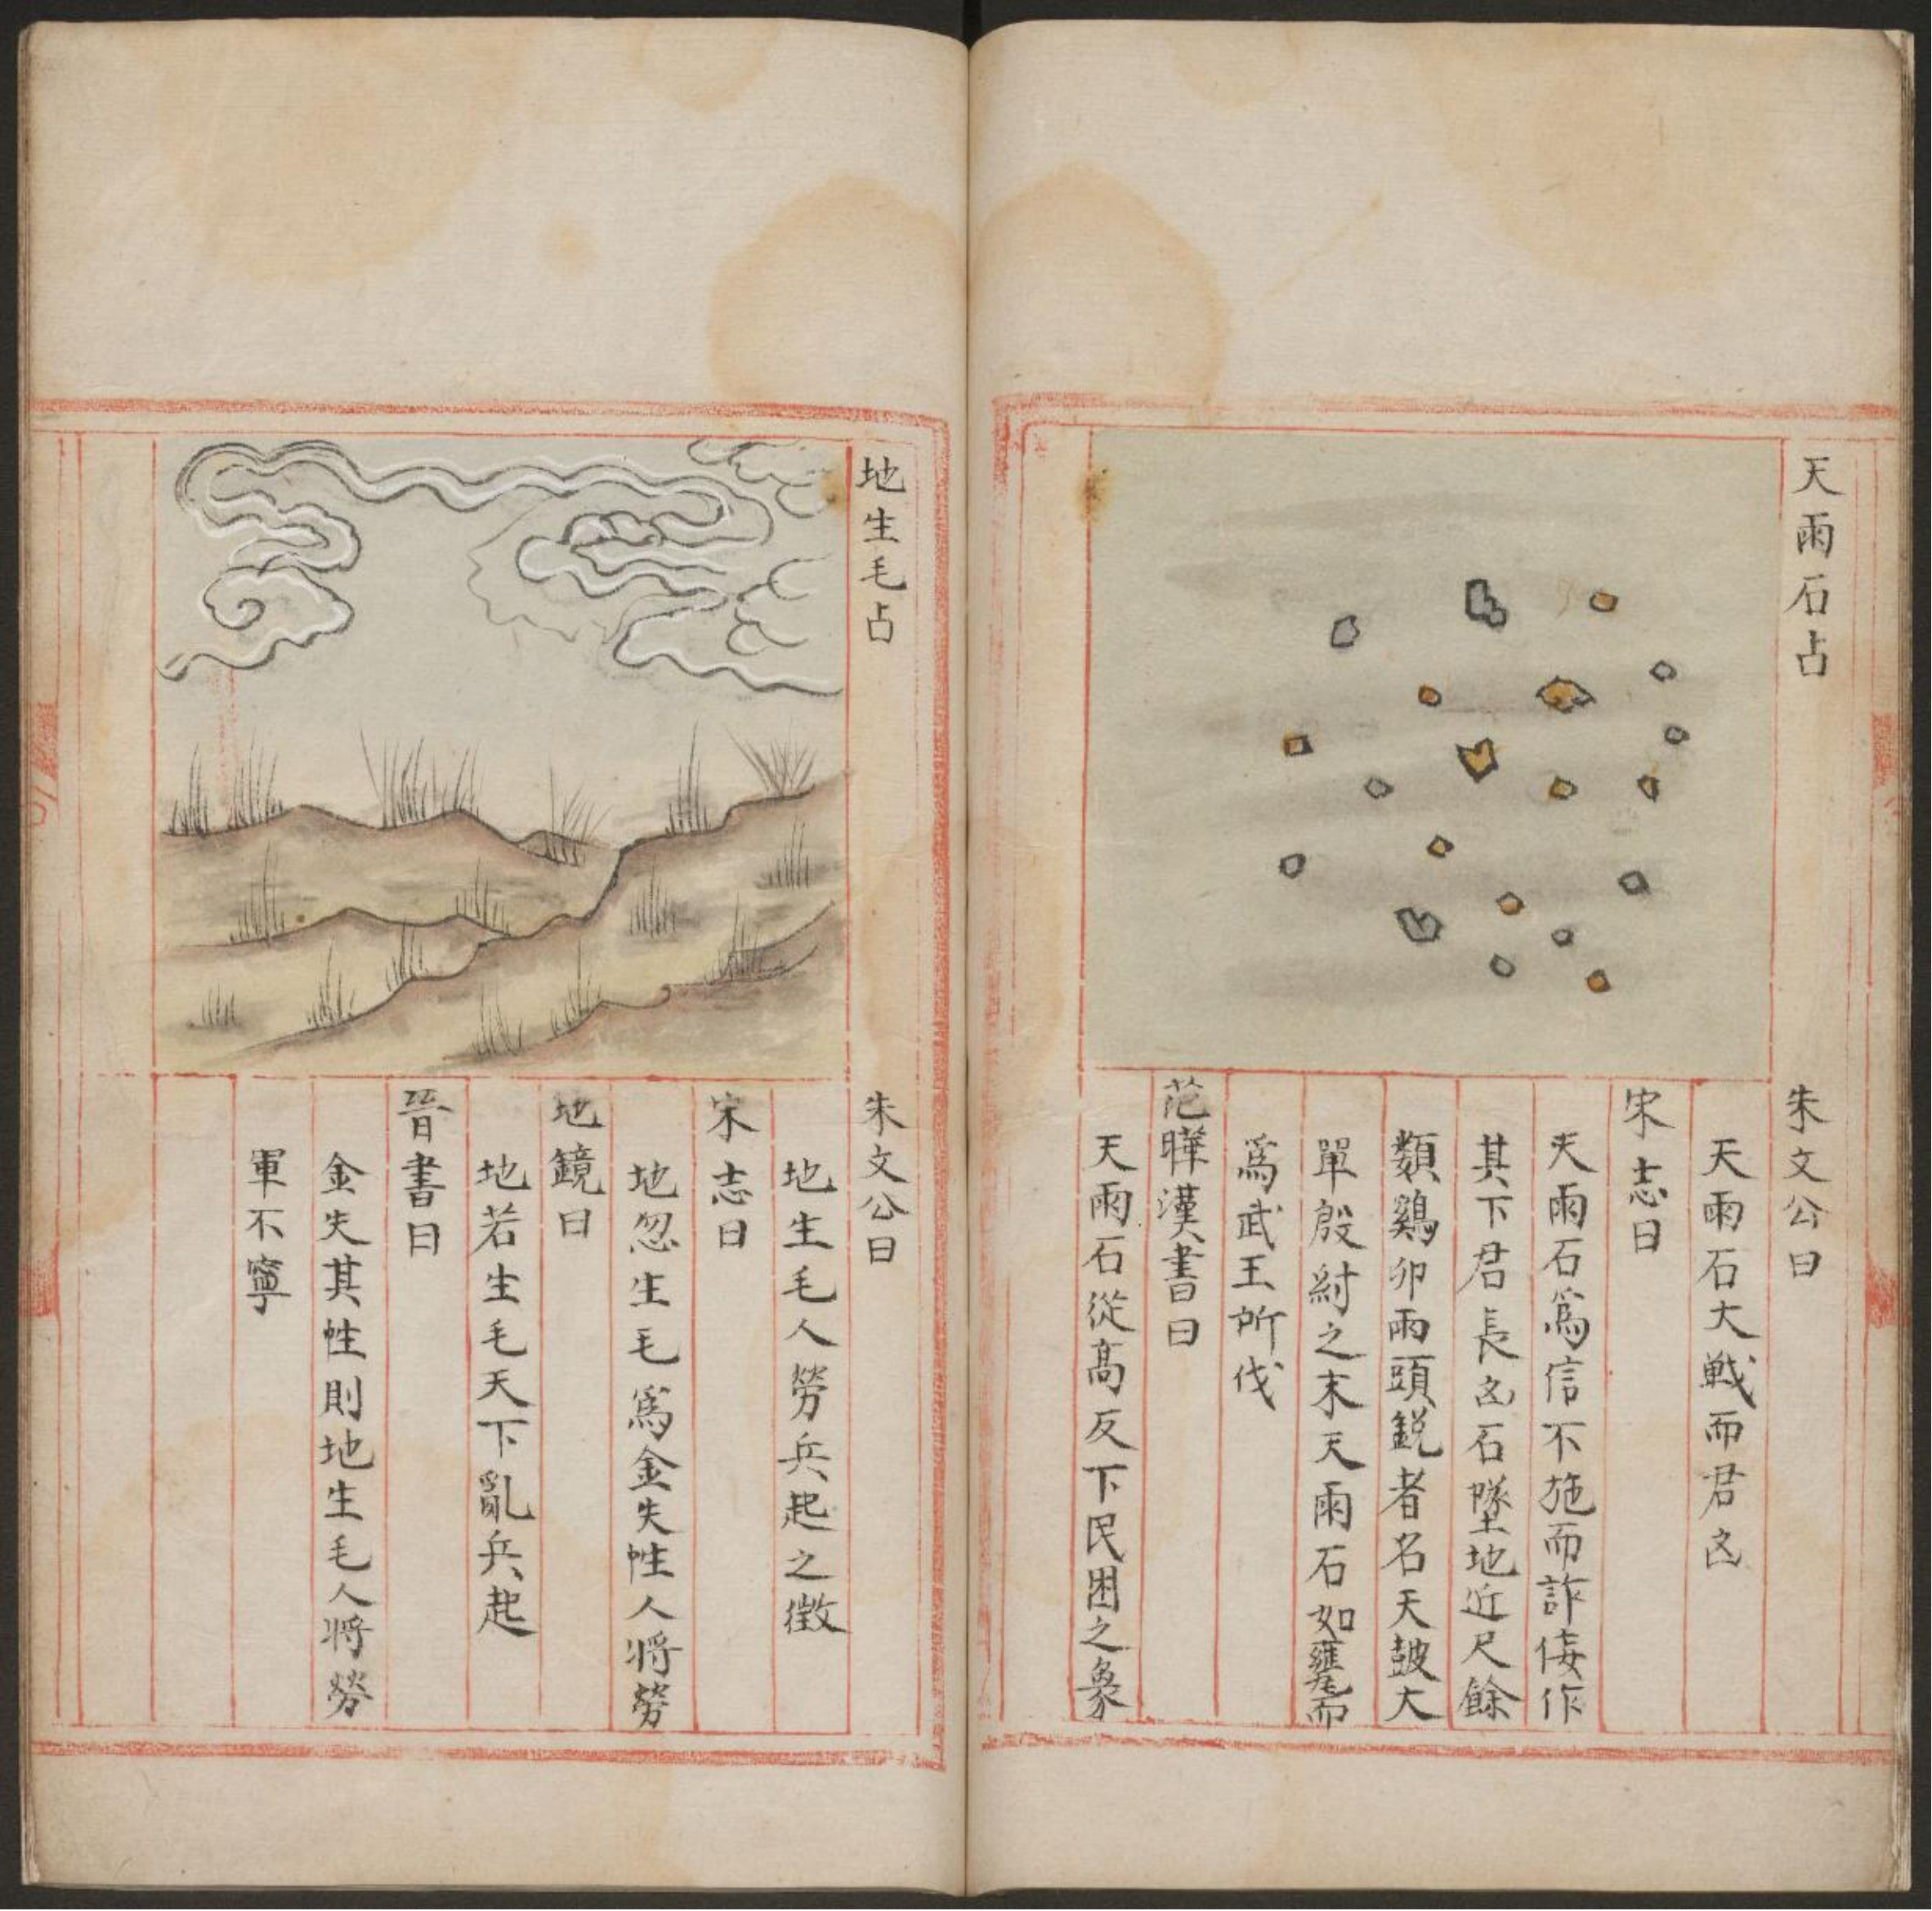 天雨石占
朱文公曰
天雨石大戦而君凶
宋志曰
天雨石爲信不施而詐佞作
其下君長凶石墜地近尺餘
類鷄卵兩頭銳者名天皷大
單殷紂之末天雨石如甕而
爲武王所伐
范曄漢書曰
天雨石從高反下民困之象
地生毛占
朱文公曰
地生毛人勞兵起之徴
宋志曰
地忽生毛爲金失性人將勞
地鏡曰
地若生毛天下亂兵起
晉書曰
金失其性則地生毛人將勞
軍不寧